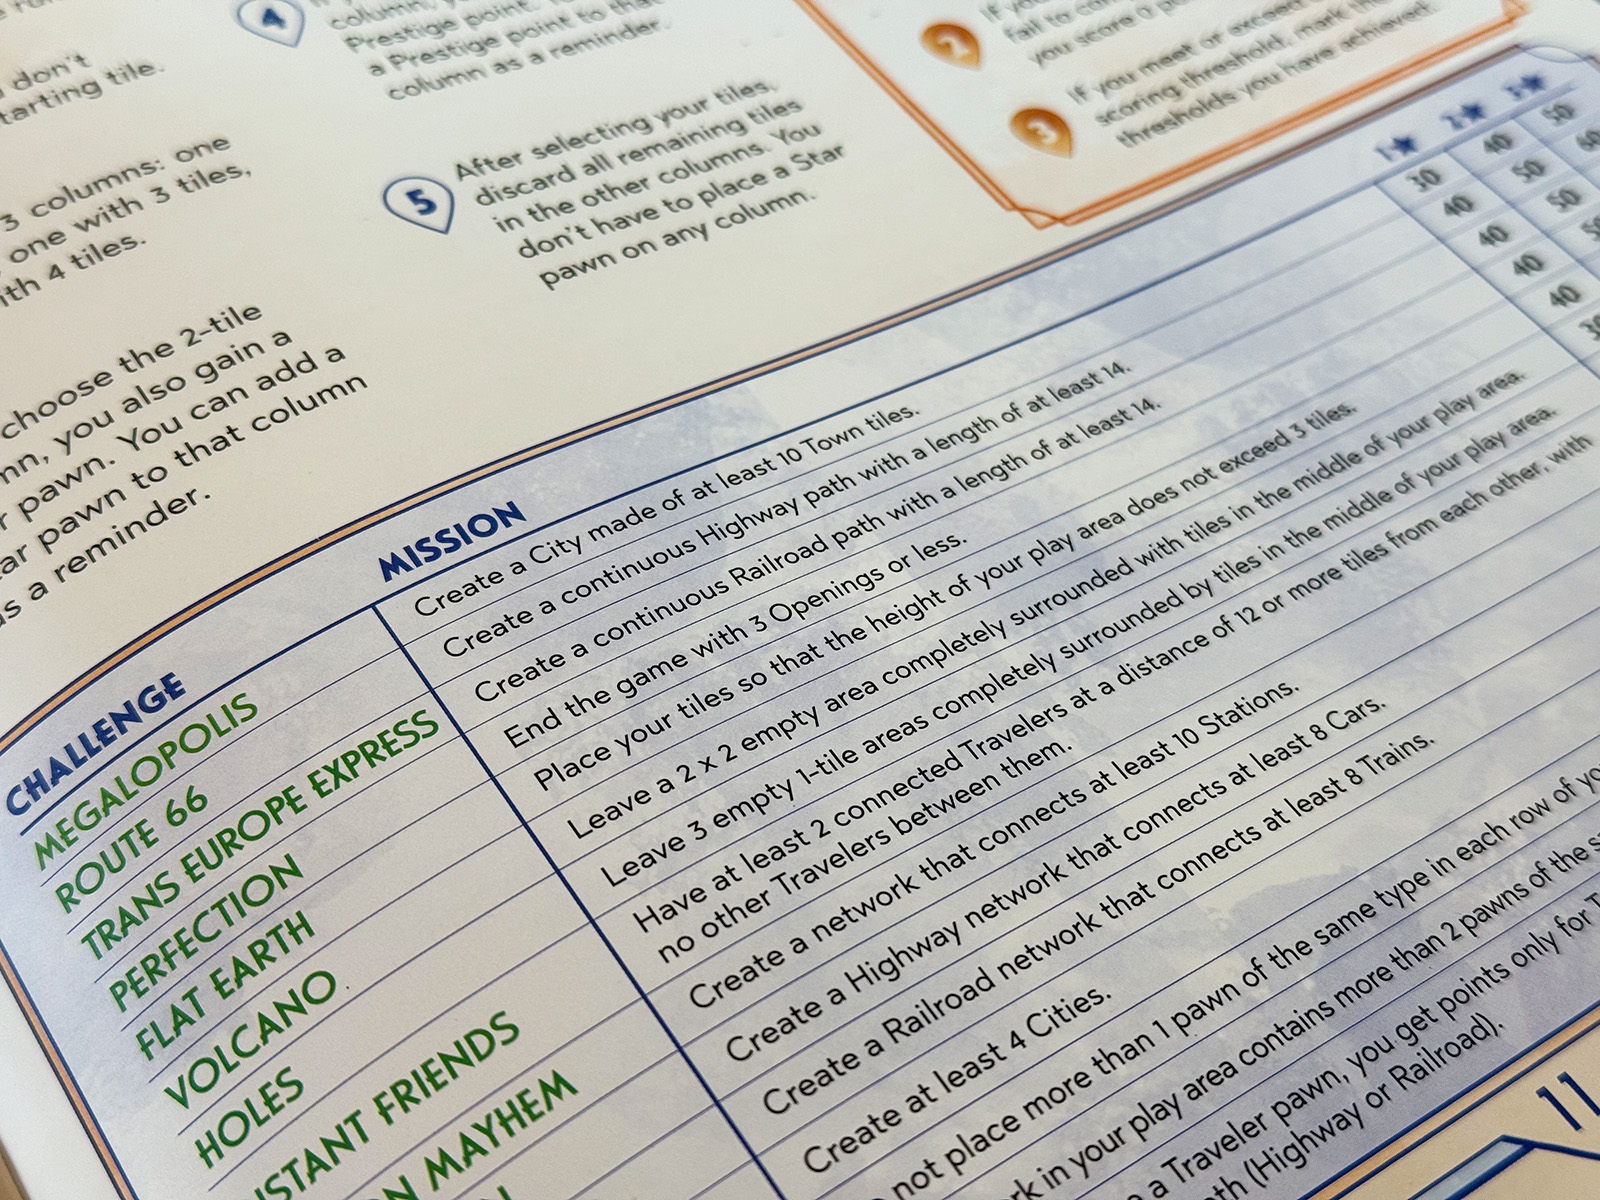 don't
tarting tile.
3 columns: one
one with 3 tiles,
ith 4 tiles.
choose the 2-tile
mn, you also gain a
r pawn. You can add a
ar pawn to that column
as a reminder.
4
column,
Prestige point.
a Prestige point to that
column as a reminder.
5
After selecting your tiles,
discard all remaining tiles
in the other columns. You
don't have to place a Star
pawn on any column.
2
you score 0
3
If you meet or exceed
scoring threshold, mark the
thresholds you have achieved.
CHALLENGE MISSION 1★ 2★ 3★
MEGALOPOLIS Create a City made of at least 10 Town tiles. 30 40 50
ROUTE 66 Create a continuous Highway path with a length of at least 14. 40 50 60
TRANS EUROPE EXPRESS Create a continuous Railroad path with a length of at least 14. 40 50
PERFECTION End the game with 3 Openings or less. 40
FLAT EARTH Place your tiles so that the height of your play area does not exceed 3 tiles. 40
VOLCANO Leave a 2 x 2 empty area completely surrounded with tiles in the middle of your play area.
HOLES Leave 3 empty 1-tile areas completely surrounded by tiles in the middle of your play area.
STANT FRIENDS Have at least 2 connected Travelers at a distance of 12 or more tiles from each other, with
no other Travelers between them.
N MAYHEM Create a network that connects at least 10 Stations.
Create a Highway network that connects at least 8 Cars.
Create a Railroad network that connects at least 8 Trains.
Create at least 4 Cities.
not place more than 1 pawn of the same type in each row of yo
rk in your play area contains more than 2 pawns of the s
a Traveler pawn, you get points only for T
th (Highway or Railroad).
11